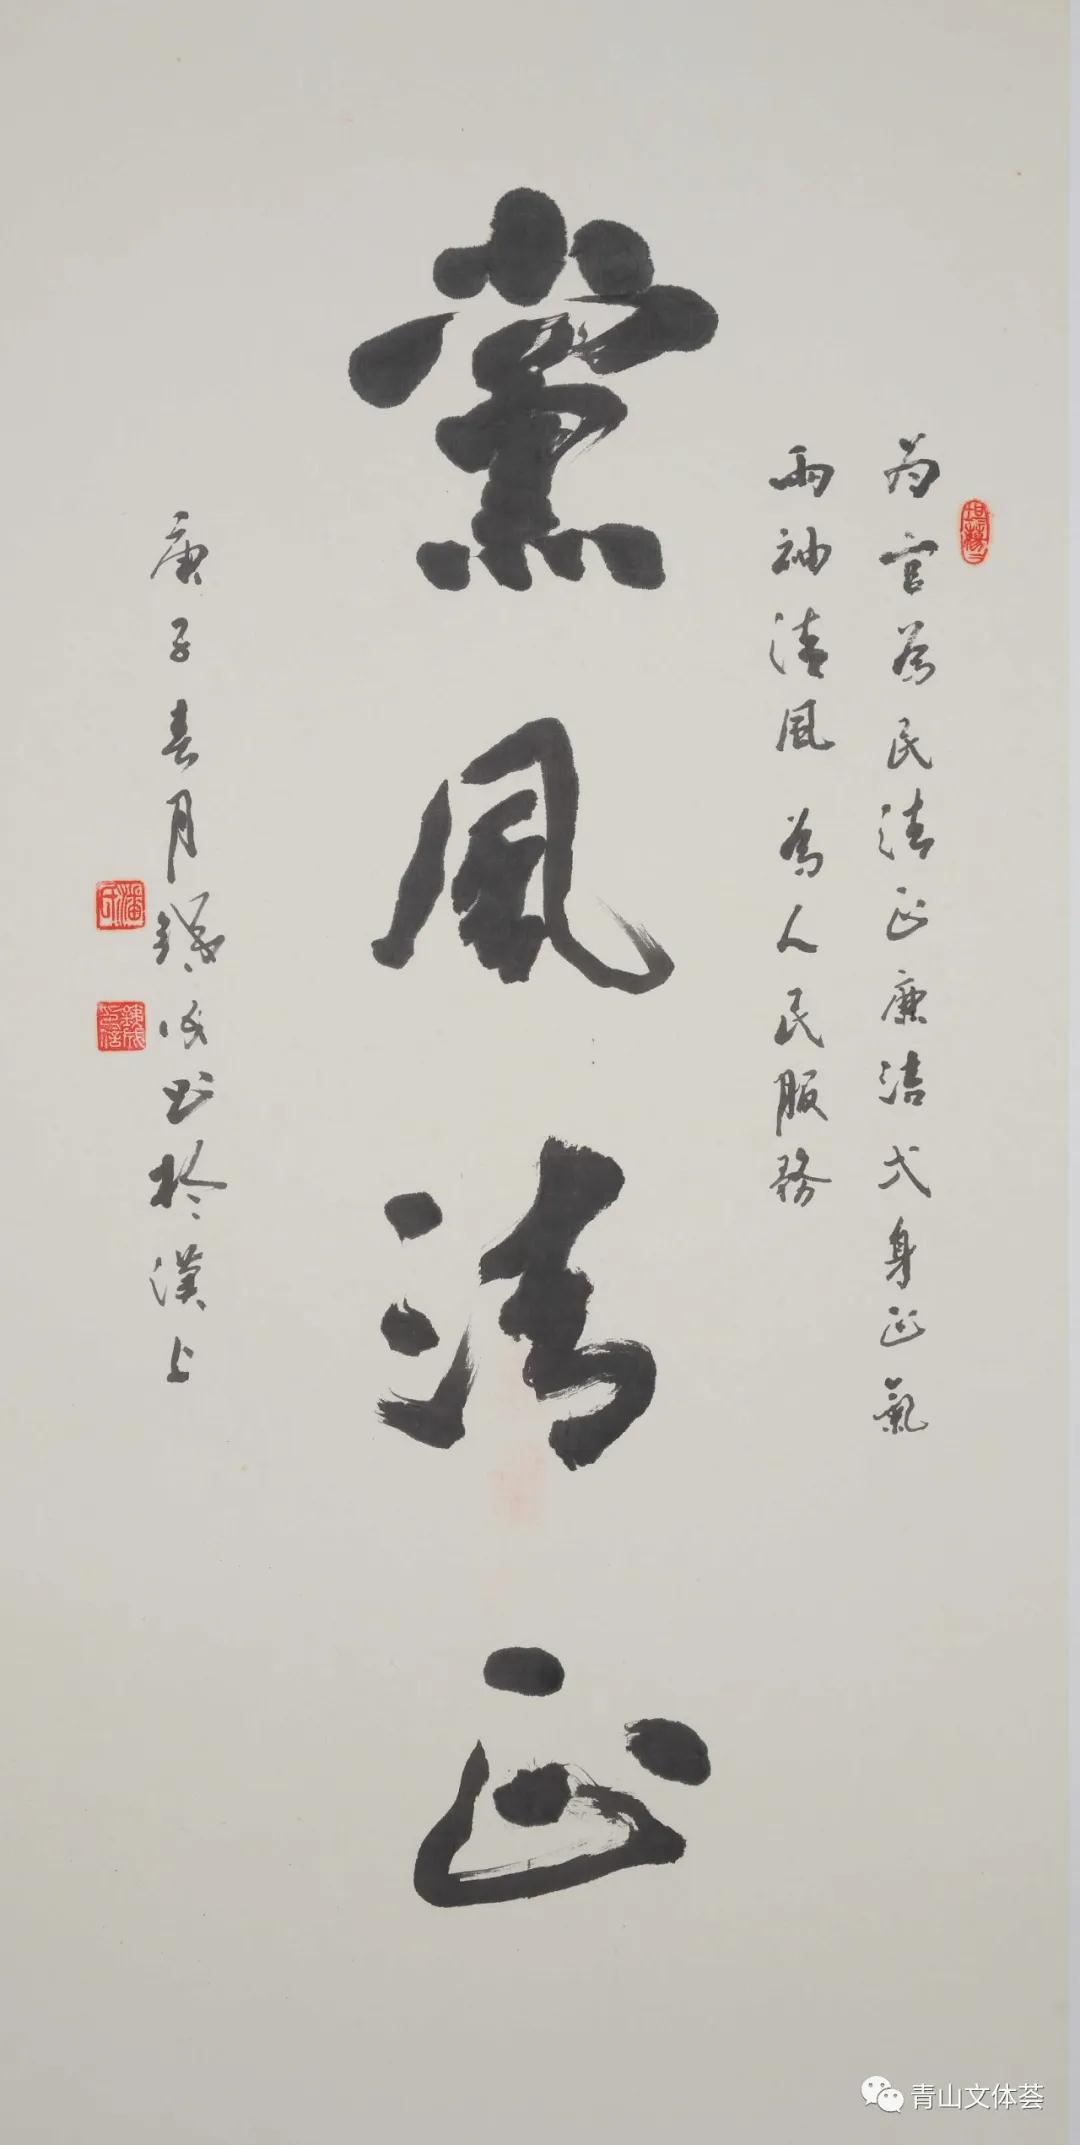 为官為民清正廉洁弌身正氣
兩袖清風 為人民服務
黨風清正
庚子春月鐵成书於漢上
潘氏
青山文体荟